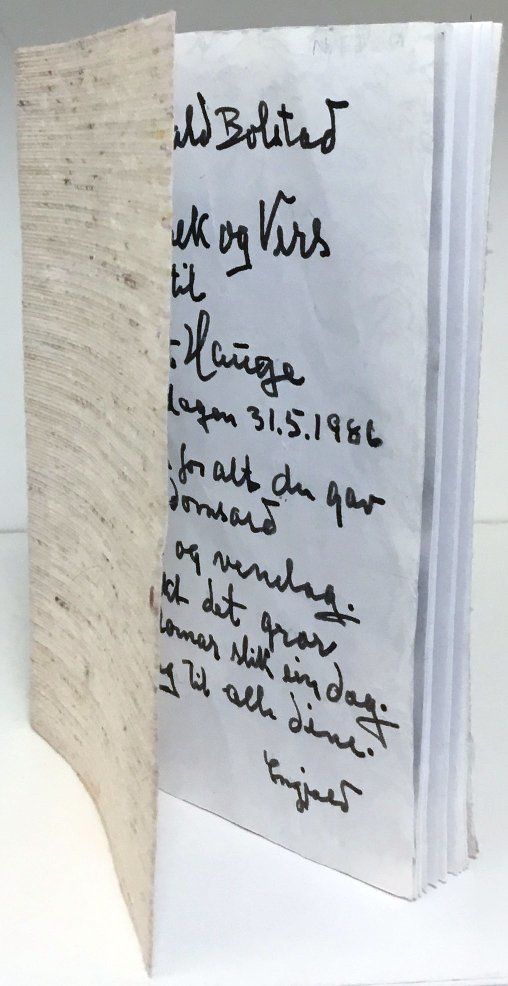 ald Bolstad
ek og Vers
til
Hauge
dagen 31.5.1986
for alt du gav
domsard
og vendag.
det gror
stilt sin dag.
til alle dine.
Engjald